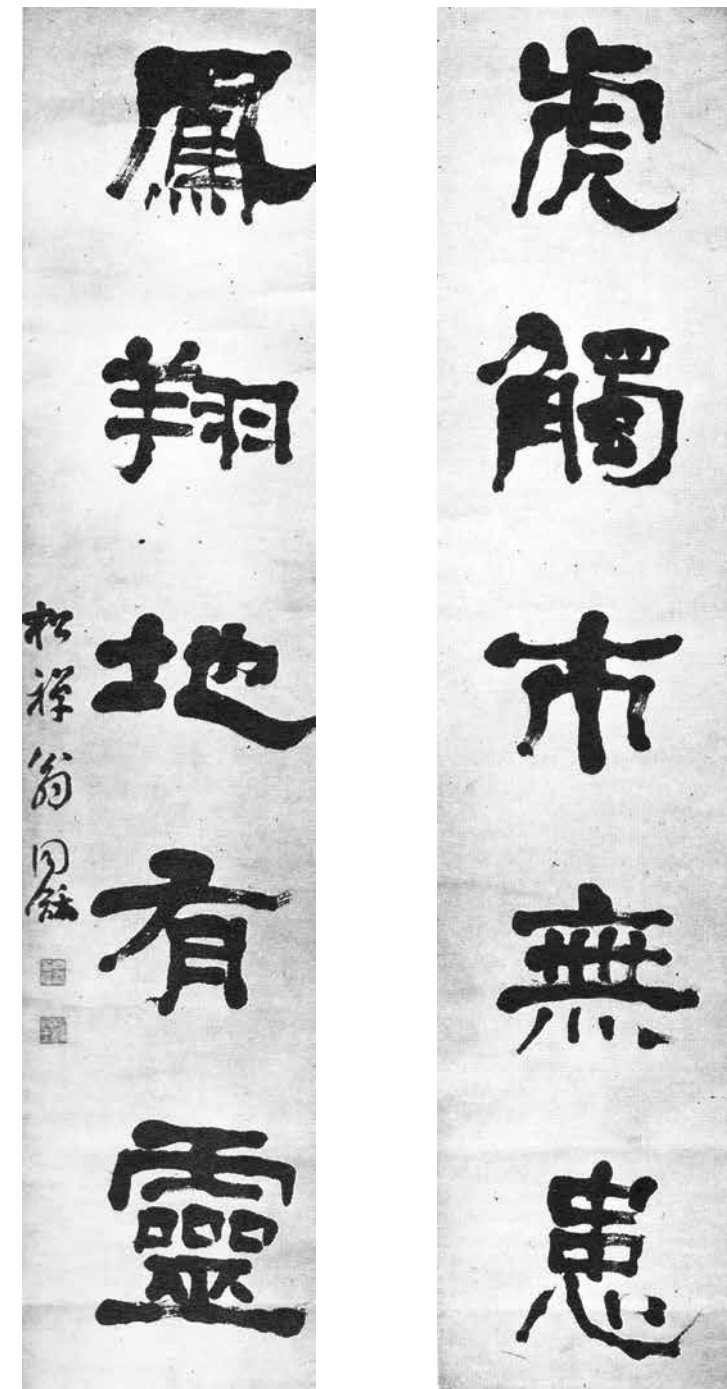 虎觸市無患
鳳翔地有靈
松禪翁同龢